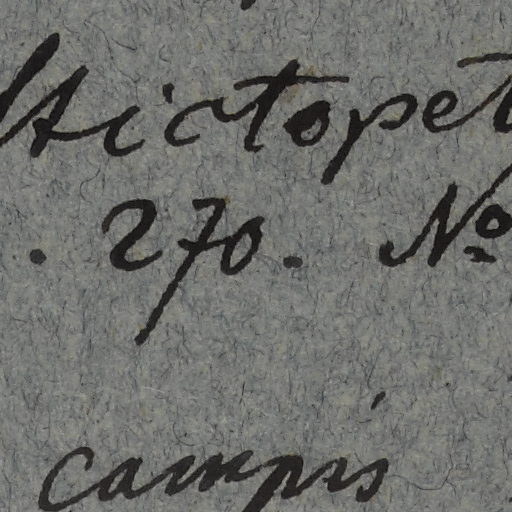 Stictopet
. 270. Nº
campis